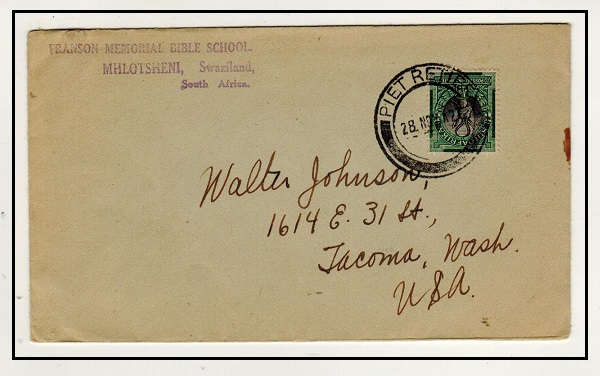 FRANSON MEMORIAL BIBLE SCHOOL.
MHLOTSHENI, Swaziland,
South Africa.
PIET RETIEF
28 NOV
Walter Johnson,
1614 E. 31 St.,
Tacoma, Wash.
USA.